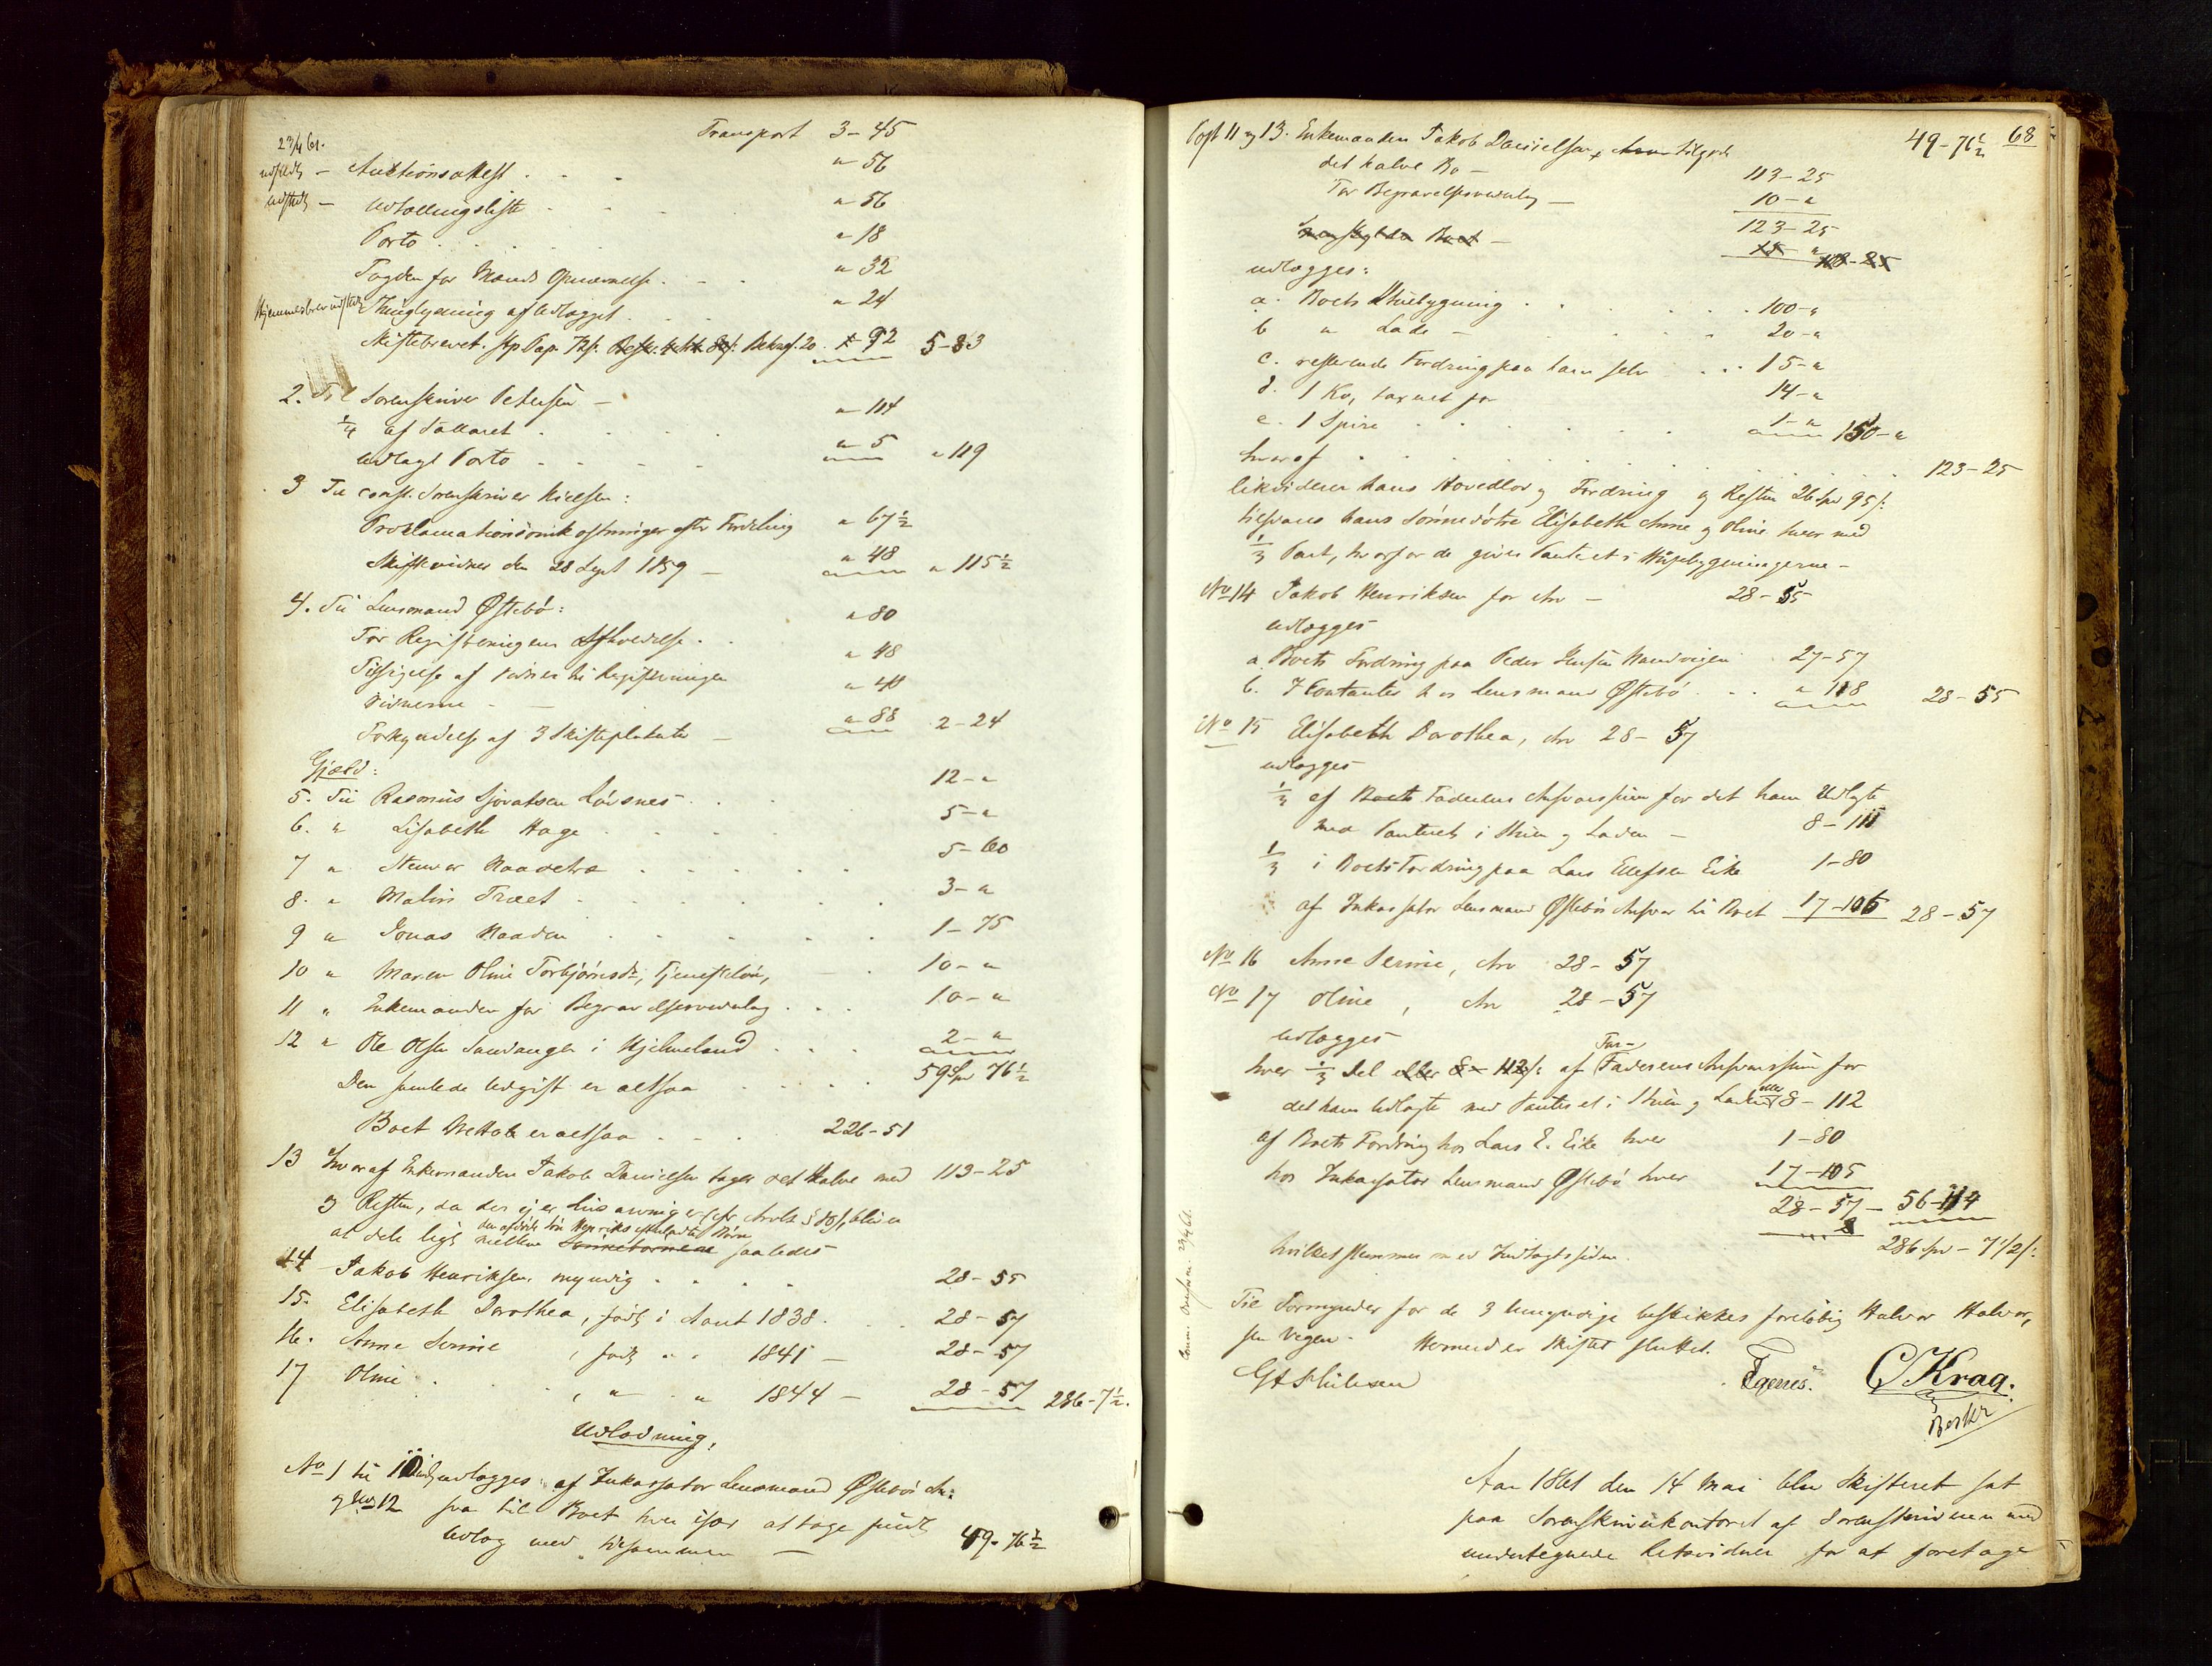 Transport 3-45
23/4 61.
udstedt - Auktionsattest . . . " 56
udstedt - Udlodningsliste . . . " 56
Porto . . . . " 18
" 32
Hjemmelsbrev udstedt Thinglysning af Udlægget . . . " 24
Skiftebrevet. Stp Pap. 72 s. Bekræf. 20. " 92 5-83
2. Til Sorenskriver Petersen -
1/4 af Sallaret . . . . " 114
Udlagt Porto . . . . " 5 " 119
3 Til const. Sorenskriver Nielsen:
Proklamationsomkostninger efter Fordeling " 67½
Skiftevidner den 28 Sept 1859 - " 48 " 115½
4. Til Lensmand Østebø:
For Registreringens Afholdelse . . " 80
Tilsigelse af Vidner til Registreringen " 48
Vidnerne - - " 40
Forkyndelse af 3 Skifteplakater - " 88 2-24
Gjæld:
5. Til Rasmus Sjovatsen Løvsnes . . . 12-"
6. " Lisabeth Hage . . . . 5-"
7 " Steiner Naadetra . . . . . 5-60
8. " Malin Træet . . . . . 3-"
9 " Jonas Naaden . . . . . 1-75
10 " Maren Oline Torbjørnsdr, Tjenesteløn, . 10-"
11 " Enkemanden for Begravelsesvederlag . . . 10-"
12 " Ole Olsen Sandanger i Hjelmeland . . . 2-"
Den samlede Udgift er altsaa . . . . 59 Spd 76½
Boet Netto er altsaa . . . 226-51
13 hvoraf Enkemanden Jakob Danielsen tager det Halve med 113-25
og Resten, da der ej er Livsarvinger, bliver
den afdøde Søn Henriks efterladte Børn
at dele ligt mellem Sønnebørnene saaledes
14 Jakob Henriksen, myndig . . . . 28-55
15. Elisabeth Dorothea, født i Aaret 1838 . . . 28-57
16. Anne Serine , født " " 1841 - 28-57
17 Oline . . . , " " " 1844 - 28-57 286-7½.
Udlodning.
No 1 til 10 incl. udlægges af Inkassator Lensmand Østebøs An-
og No 12 svar til Boet hver især at tage sine
Udlæg med tilsammen - 49-76½
68
Post 11 og 13. Enkemanden Jakob Danielsen, Arve 49-76½
det halve Bo - 113-25
For Begravelsesvederlag - 10-"
123-25
Boet - 15 " 108-25
udlægges:
a. Boets Stuebygning . . . . . 100-"
b " Lade - . . . 20-"
c. resterende Fordring paa ham selv . . . 15-"
d. 1 Ko, taxeret for 14-"
e. 1 Spire . . . . . . 1-" 150-"
hvoraf . . . . . . . . . . 123-25
likviderer hans Hovedlod og Fordring og Resten 26 Spd 95 s.
tilsvares hans Sønnedøtre Elisabeth Anne og Oline hver med
1/3 Part, hvorfor de gives Panteret i Husebygningerne -
No 14 Jakob Henriksen for Arv - 28-55
udlægges
a. Boets Fordring paa Peder Jensen Sandvigen . 27-57
b. I Contanter hos Lensmand Østebø . . . " 118 28-55
No 15 Elisabeth Dorothea, Arv 28-57
udlægges
1/3 af Boets Faderens Ansvarssum for det ham Udlagte
med Panteret i Stuen og Laden - 8-111
1/3 i Boets Fordring paa Lars Ellefsen Eike 1-80
af Inkassator Lensmand Østebøs Ansvar til Boet 17-106 28-57
No 16 Anne Serine, Arv 28-57
No 17 Oline , Arv 28-57
udlægges
Far-
hver 1/3 Del eller 8-112 s. af Faderens Ansvarssum for
det ham Udlagte med Panteret i Stuen og Laden eller 8-112
af Boets Fordring hos Lars E. Eike hver 1-80
hos Inkassator Lensmand Østebø hver 17-105
28-57 - 56-114
hvilket stemmer med Indtægtssiden. 286 Spd - 7½ s.
Til Formynder for de 3 Umyndige beskikkes foreløbig Halvor Halvor-
sen Vegen - Hermed er Skiftet sluttet.
Egenes. C Krag.
Aar 1861 den 14 Mai blev Skifteret sat
paa Sorenskriverkontoret af Sorenskriveren med
undertegnede Retsvidner for at foretage